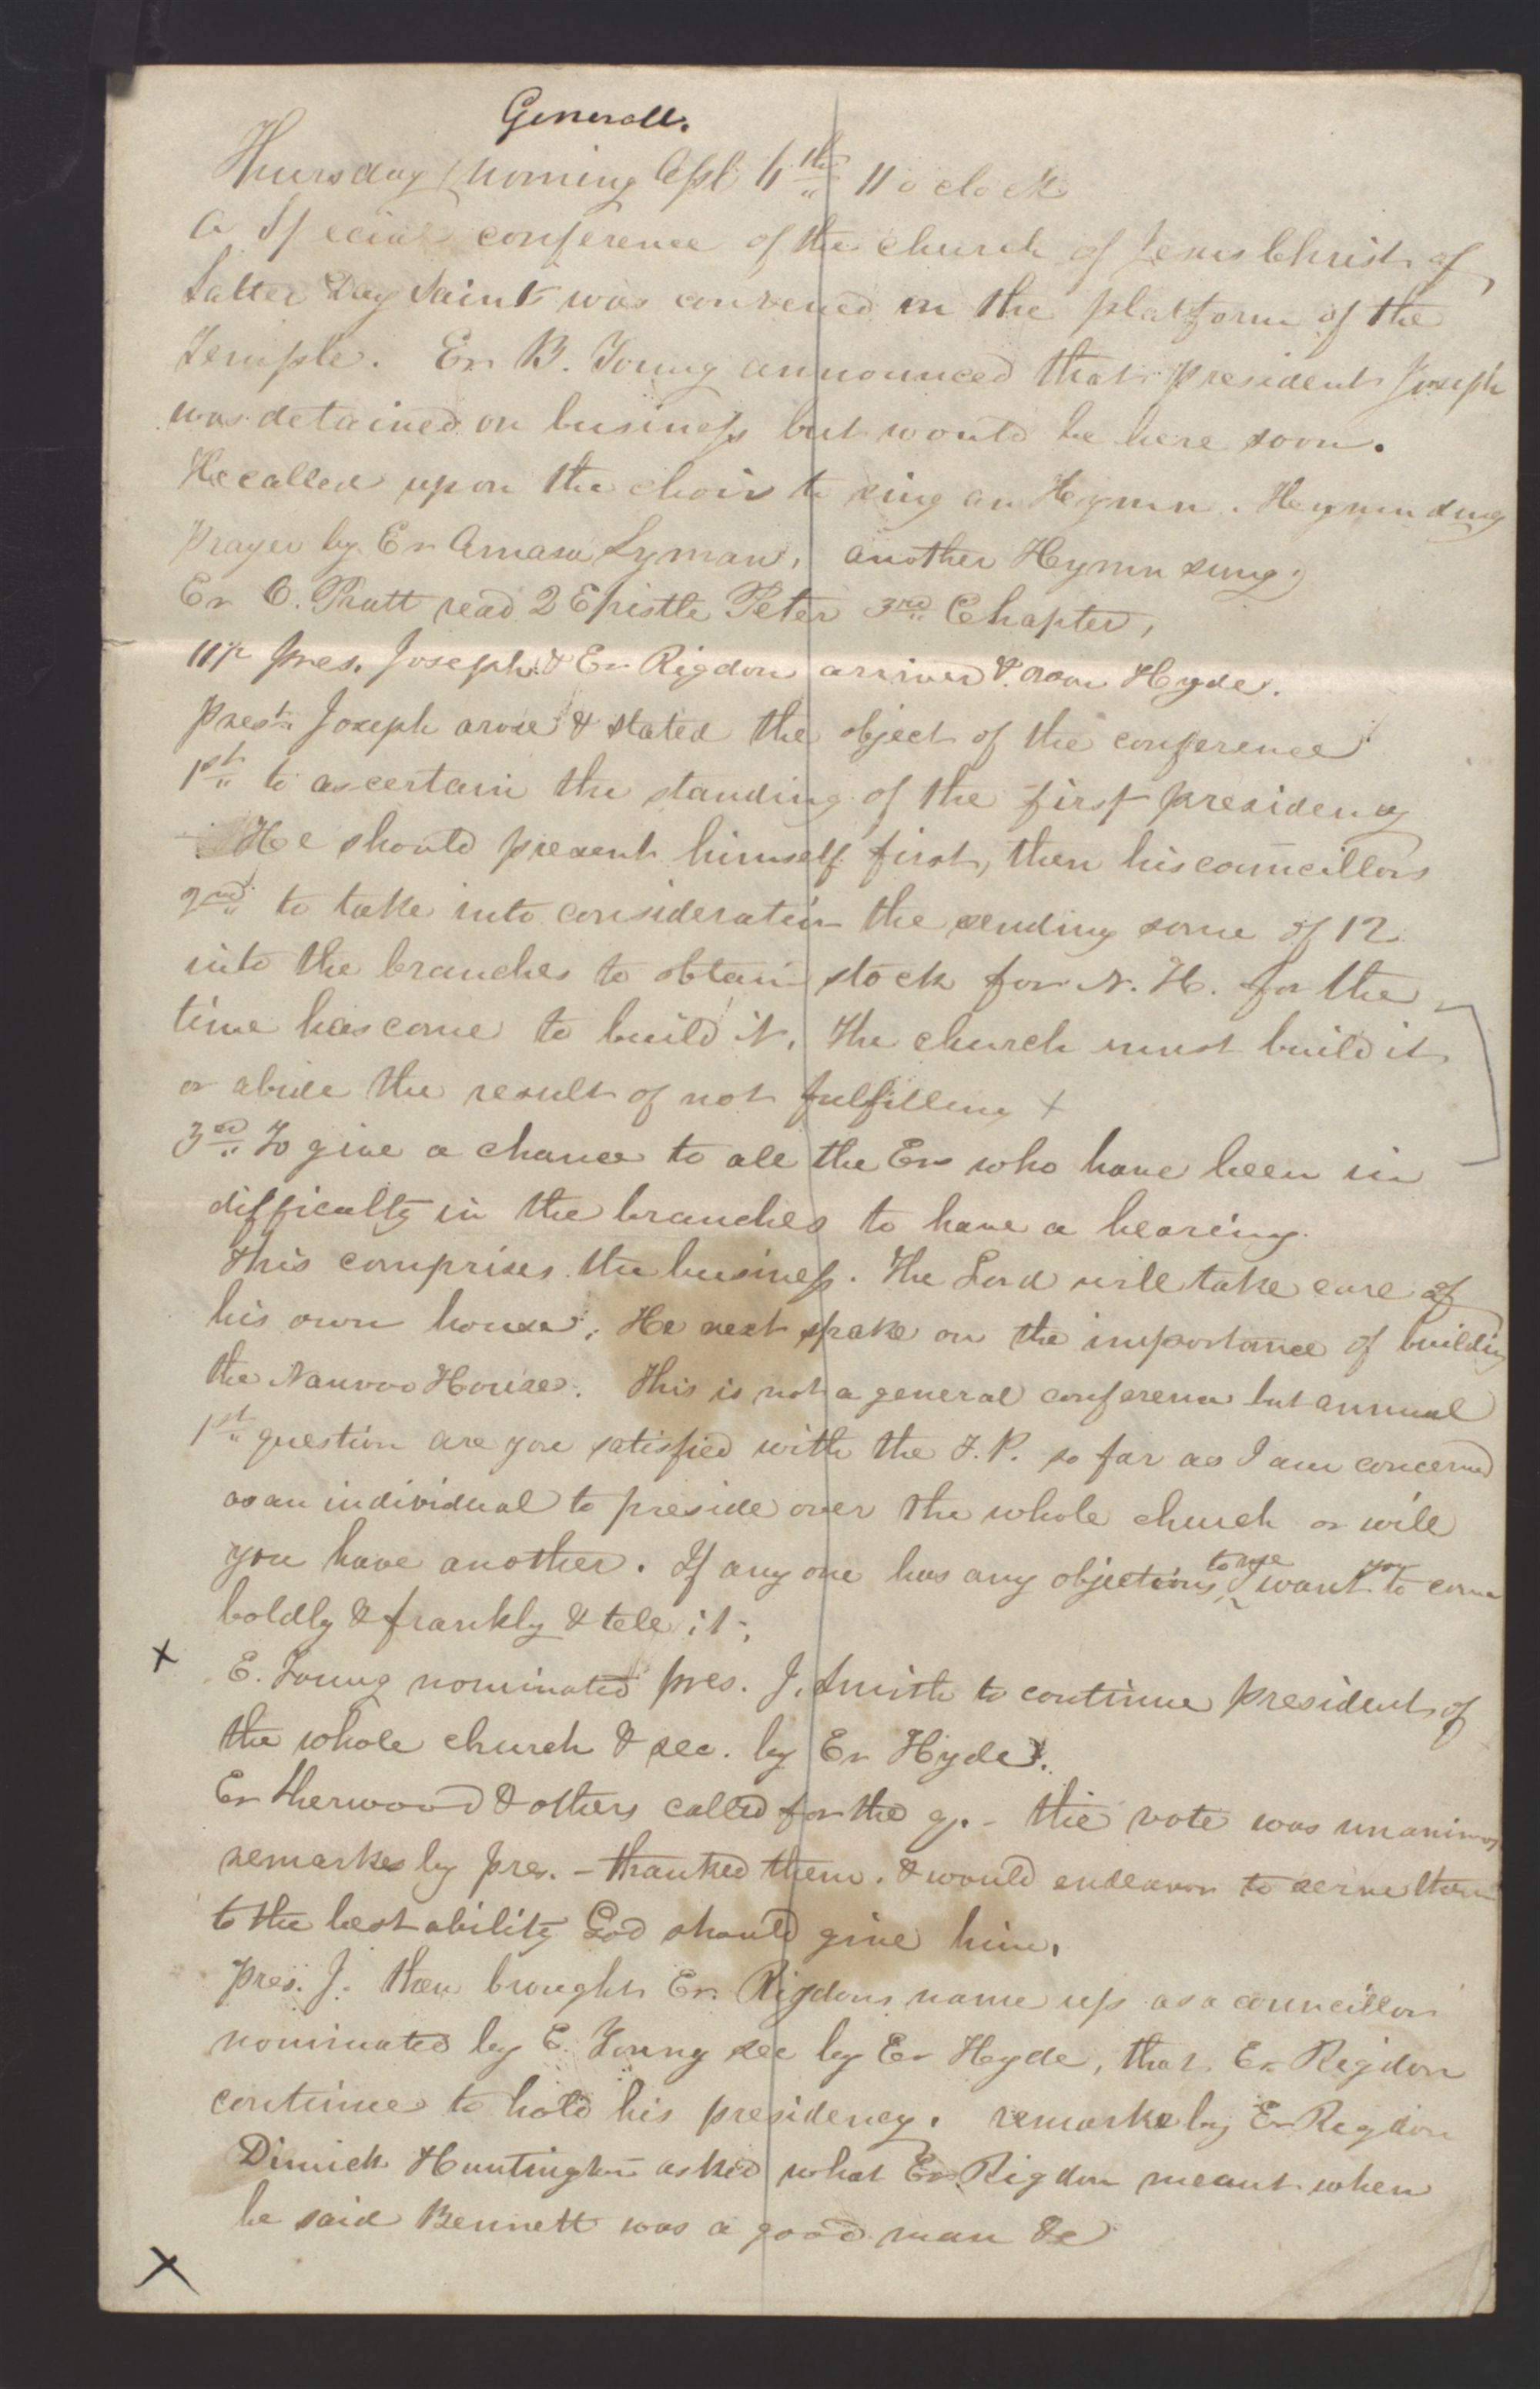 Generall.
Thursday morning Apl 6th 11 o clock
a Special conference of the church of Jesus Christ of
Latter Day Saints was convened on the platform of the
Temple. Er B. Young announced that president Joseph
was detained on business but would be here soon.
He called upon the choir to sing an Hymn. Hymn sung
Prayer by Er Amasa Lyman, another Hymn sung,
Er O. Pratt read 2 Epistle Peter 3rd Chapter,
pres. Joseph & Er Rigdon arrived & Hyde.
Prest. Joseph arose & stated the object of the conference
1st to ascertain the standing of the first presidency
He should present himself first, then his councillors
2nd to take into consideration the sending some of 12
into the branches to obtain stock for N. H. for the
time has come to build it, The church must build it
or abide the result of not fulfilling +
3d To give a chance to all the Ers who have been in
difficulty in the branches to have a hearing.
This comprises the business. The Lord will take care of
his own house, He next spake on the importance of building
the Nauvoo House. This is not a general conference but annual
1st question are you satisfied with the F. P. so far as I am concerned
as an individual to preside over the whole church or will
you have another. If any one has any objections to me I want you to come
boldly & frankly & tell it,
X E. Young nominated pres. J. Smith to continue president of
the whole church & sec. by Er Hyde.
Er Sherwood & others called for the q. - the vote was unanimous
remarks by pres. - thanked them. & would endeavor to serve them
to the best ability God should give him.
Pres. J. then brought Er. Rigdons name up as a councillor
nominated by E. Young sec by Er Hyde, that Er Rigdon
continue to hold his presidency. remarks by Er Rigdon
Dimick Huntington asked what Er Rigdon meant when
he said Bennett was a good man &c
X